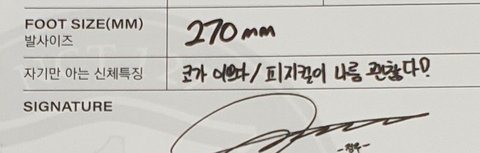 FOOT SIZE(MM)
발사이즈
270mm
자기만 아는 신체특징
코가 이뻐/ 피지컬이 나름 괜찮다?
SIGNATURE
-정우-